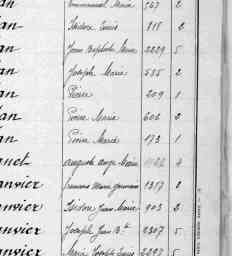 an Emmanuel Marie 767 2
an Isidore Louis 818 2
an Jean Baptiste Marie 2229 5
an Joseph Marie 535 2
an Pierre 209 1
an Pierre Marie 606 2
an Pierre Marie 173 1
Auguste Ange Marie 4
anvier François Marie 1317 2
anvier Isidore Jean Marie 903 2
anvier Joseph Jean Bte 2307 5
anvier Marie Joseph Louis 2097 5